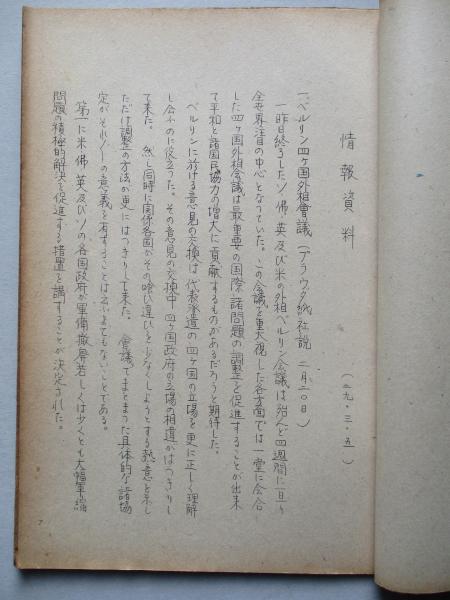 情報資料
（二九・三・五）
一、ベルリン四ヶ国外相會議（プラウダ紙社説 二月二〇日）
一昨日終了したソ、佛、英及び米の外相ベルリン会議は殆んど四週間に亘り
全世界注目の中心となっていた。この会議を重大視した各方面では一堂に会合
した四ヶ国外相会議は最重要の国際諸問題の調整を促進することが出来
て平和と諸国民協力の増大に貢献するものがあるだろうと期待した。
ベルリンに於ける意見の交換は代表派遣の四ヶ国の立場を更に正しく理解
し合うのに役立った。その意見の交換中四ヶ国政府の立場の相違がはっきりし
て来た。然し同時に関係各国がその喰い違いを少なくしようとする熱意を示し
ただけ調整の方法が更にはっきりして来た。會議でまとまった具体的な諸協
定がそれぞれの意義を有することは云ふまでもないことである。
第一に米佛英及びソの各国政府が軍備撤廃若しくは少くとも大幅軍縮
問題の積極的解決を促進する措置を講ずることが決定された。
7